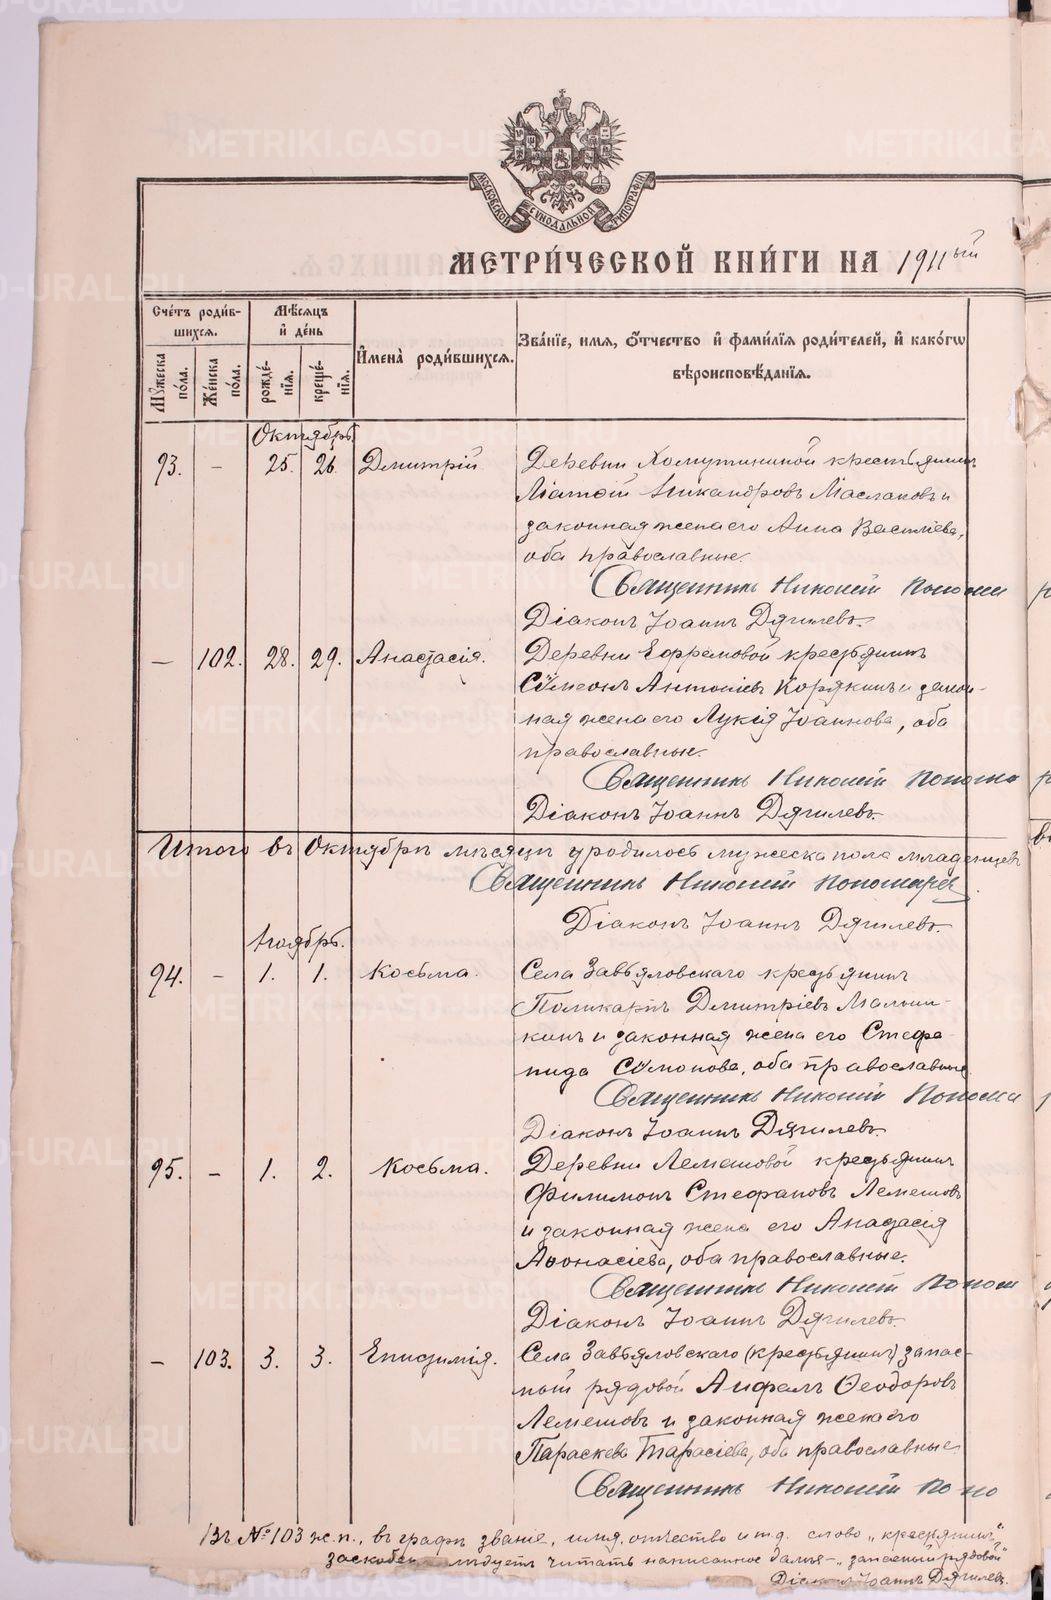 METRIKI.GASO-URAL.RU
МОСКОВСКОЙ СѴНОДАЛЬНОЙ ТИПОГРАФІИ
МЕТРИ́ЧЕСКОЙ КНИ́ГИ НА 1911ый
Счётъ роди́вшихся.
Мѣ́сяцъ и҆ де́нь
И҆мена̀ роди́вшихся.
Зва́нїе, имѧ, ѻ҆́тчество и҆ фами́лїѧ роди́телей, и҆ како́гѡ
вѣроисповѣ́данїѧ.
Мꙋ́жеска по́ла.
Же́нска по́ла.
рожде́нїѧ.
креще́нїѧ.
Октябрь
93. – 25. 26. Дмитрій Деревни Хомутининой крестьянинъ
Никандровъ Маслаковъ и
законная жена его Анна Василіева,
оба православные.
Священникъ Николай Пономар
Діаконъ Іоаннъ Дягилевъ.
– 102. 28. 29. Анастасія. Деревни Ефремовой крестьянинъ
Сѵмеонъ Антоніевъ Корякинъ и закон-
ная жена его Лукія Іоаннова, оба
православные.
Священникъ Николай Понома
Діаконъ Іоаннъ Дягилевъ.
Итого въ Октябрѣ мѣсяцѣ родилось мужеска пола младенцевъ
Священникъ Николай Пономарев
Діаконъ Іоаннъ Дягилевъ.
Ноябрь.
94. – 1. 1. Косьма. Села Завьяловскаго крестьянинъ
Поликарпъ Дмитріевъ
кинъ и законная жена его Стефа-
нида Сѵмонова, оба православные
Священникъ Николай Понома
Діаконъ Іоаннъ Дягилевъ.
95. – 1. 2. Косьма. Деревни Лемешовой крестьянинъ
Филимонъ Стефановъ Лемешовъ
и законная жена его Анастасія
Аѳонасіева, оба православные.
Священникъ Николай Поном
Діаконъ Іоаннъ Дягилевъ.
– 103. 3. 3. Епистимія. Села Завьяловскаго (крестьянинъ) запас-
ный рядовой Анфалъ Ѳеодоровъ
Лемешовъ и законная жена его
Параскева Тарасіева, оба православные
Священникъ Николай Поно
Въ № 103 ж.п., въ графѣ званіе, имя, отчество и т.д. слово „крестьянинъ"
слѣдуетъ читать написанное далѣе – „запасный рядовой"
Діаконъ Іоаннъ Дягилевъ.